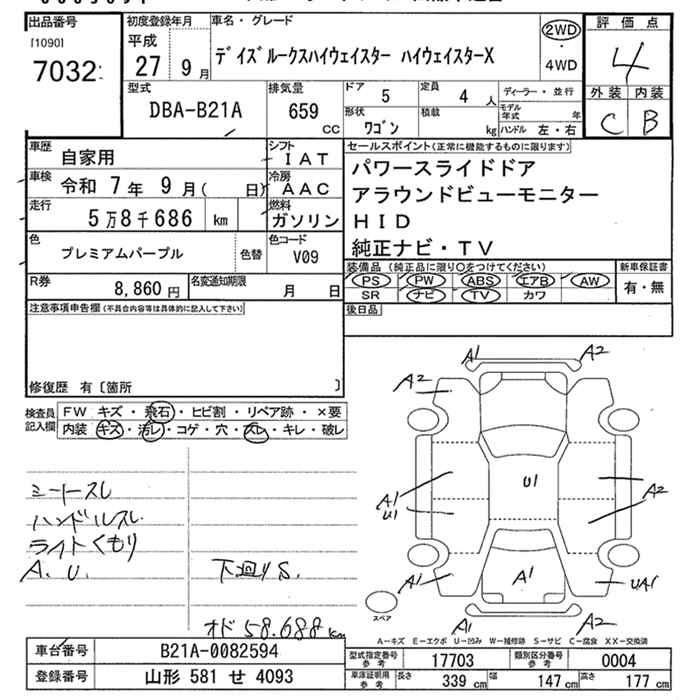 出品番号
[1090]
7032
初度登録年月
平成
27 9月
車名・グレード
デイズルークスハイウェイスター ハイウェイスターX
2WD
・
4WD
評価点
4
外装 内装
C B
型式
DBA-B21A
排気量
659
CC
ドア 5
定員 4 人
形状 ワゴン
積載 kg
ディーラー・並行
モデル年式 年
ハンドル 左・右
車歴 自家用
シフト IAT
車検 令和 7年 9月( 日)
冷房 AAC
走行 5万8千686 km
燃料 ガソリン
色 プレミアムパープル
色替
色コード V09
R券 8,860 円
名変通知期限 月 日
セールスポイント(正常に機能するものに限ります)
パワースライドドア
アラウンドビューモニター
HID
純正ナビ・TV
装備品 (純正品に限り○をつけてください)
PS PW ABS エアB AW
SR ナビ TV カワ
新車保証書
有・無
後日品
注意事項申告欄(不具合内容等は具体的に記入して下さい)
修復歴 有〔箇所 〕
検査員記入欄
FW キズ・飛石・ヒビ割・リペア跡・×要
内装 キズ・汚レ・コゲ・穴・スレ・キレ・破レ
シートスレ
ハンドルスレ
ライトくもり
A.U.
下廻りS.
オド 58.688 km
A1 A2
A2
U1
A1
U1
A2
A1
A1
UA1
A1
A2
スペア
A-キズ E-エクボ U-凹み W-補修跡 S-サビ C-腐食 XX-交換済
車台番号 B21A-0082594
登録番号 山形 581 せ 4093
型式指定番号参考 17703
類別区分番号参考 0004
車庫証明用参考 長さ 339 cm 幅 147 cm 高さ 177 cm